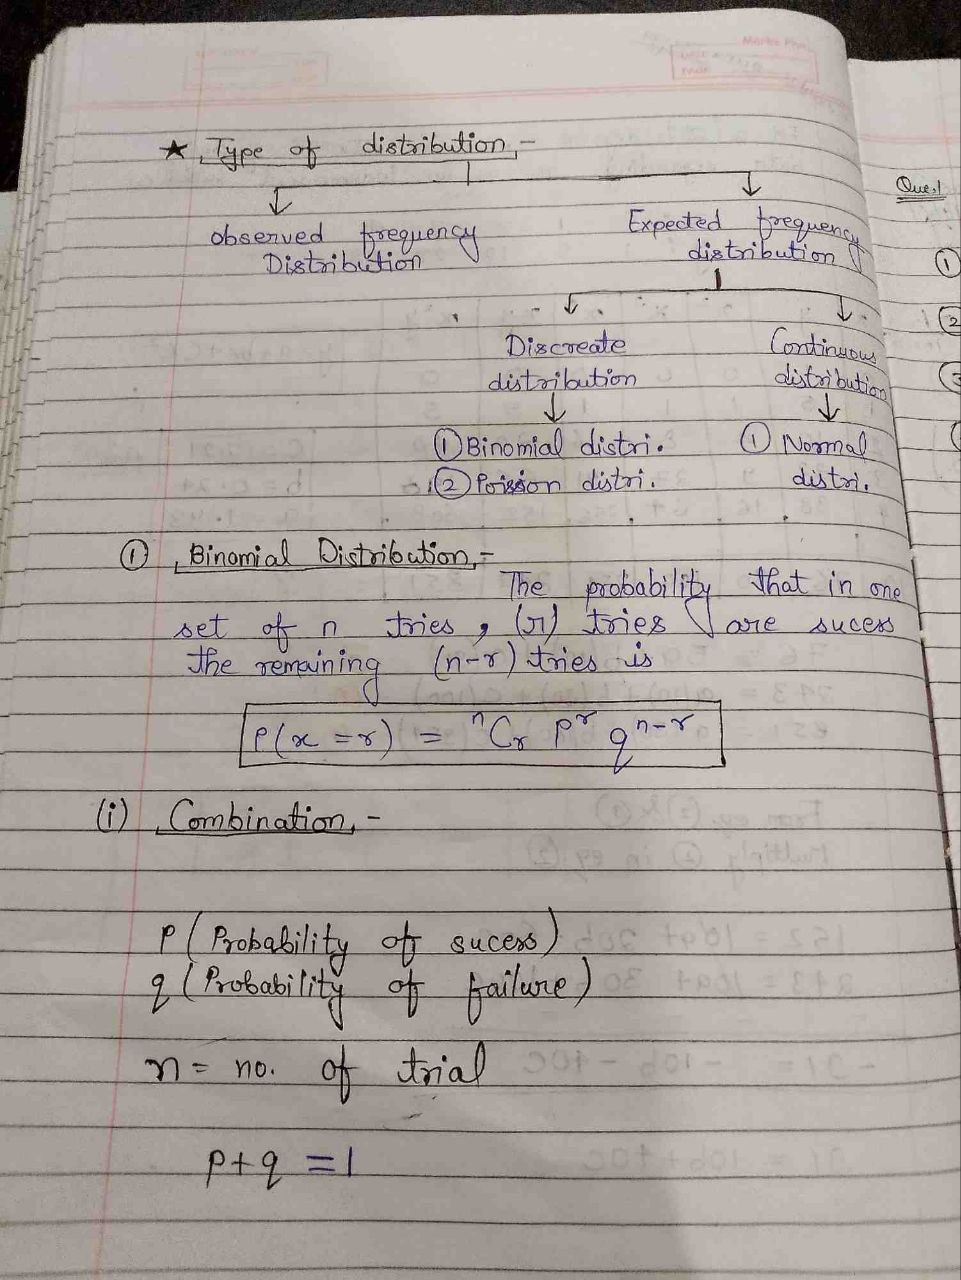 ★ Type of distribution,-
observed frequency
Distribution
Expected frequency
distribution
Discreate
distribution
Continuous
distribution
① Binomial distri.
② Poission distri.
① Normal
distri.
① Binomial Distribution,-
The probability that in one
set of n tries, (r) tries are sucess
the remaining (n-r) tries is
P(x=r) = ⁿCᵣ Pʳ qⁿ⁻ʳ
(i) Combination,-
P (Probability of sucess)
q (Probability of failure)
n = no. of trial
p+q = 1
Ques.1
①
②
③